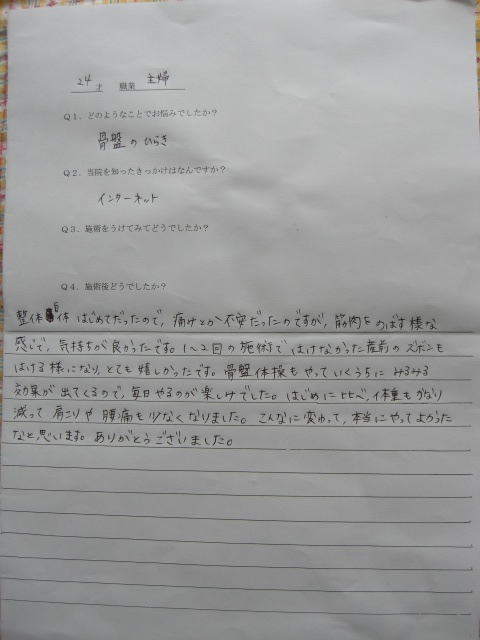 24 才 職業 主婦
Q1．どのようなことでお悩みでしたか？
骨盤のひらき
Q2．当院を知ったきっかけはなんですか？
インターネット
Q3．施術をうけてみてどうでしたか？
Q4．施術後どうでしたか？
整体自体はじめてだったので、痛みとか不安だったのですが、筋肉をのばす様な
感じで、気持ちが良かったです。1～2回の施術ではけなかった産前のズボンも
はける様になり、とても嬉しかったです。骨盤体操もやっていくうちにみるみる
効果が出てくるので、毎日やるのが楽しみでした。はじめに比べ、体重もかなり
減って肩こりや腰痛も少なくなりました。こんなに変わって、本当にやってよかった
なと思います。ありがとうございました。